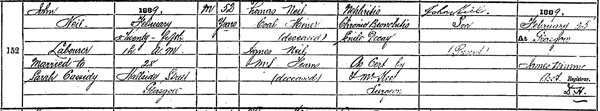 152
John
Neil
Labourer
Married to
Sarah Cassidy
1889,
February
Twenty-fifth
1h. A.M.
25
Halliday Street
Glasgow
M
52
Years
Thomas Neil
Coal Miner
(deceased)
Agnes Neil
M.S.
(deceased)
Nephritis
Chronic Bronchitis
Senile Decay
As Cert by
Surgeon
John Neil
Son
(Present)
1889,
February 25
At Glasgow
James
Registrar.